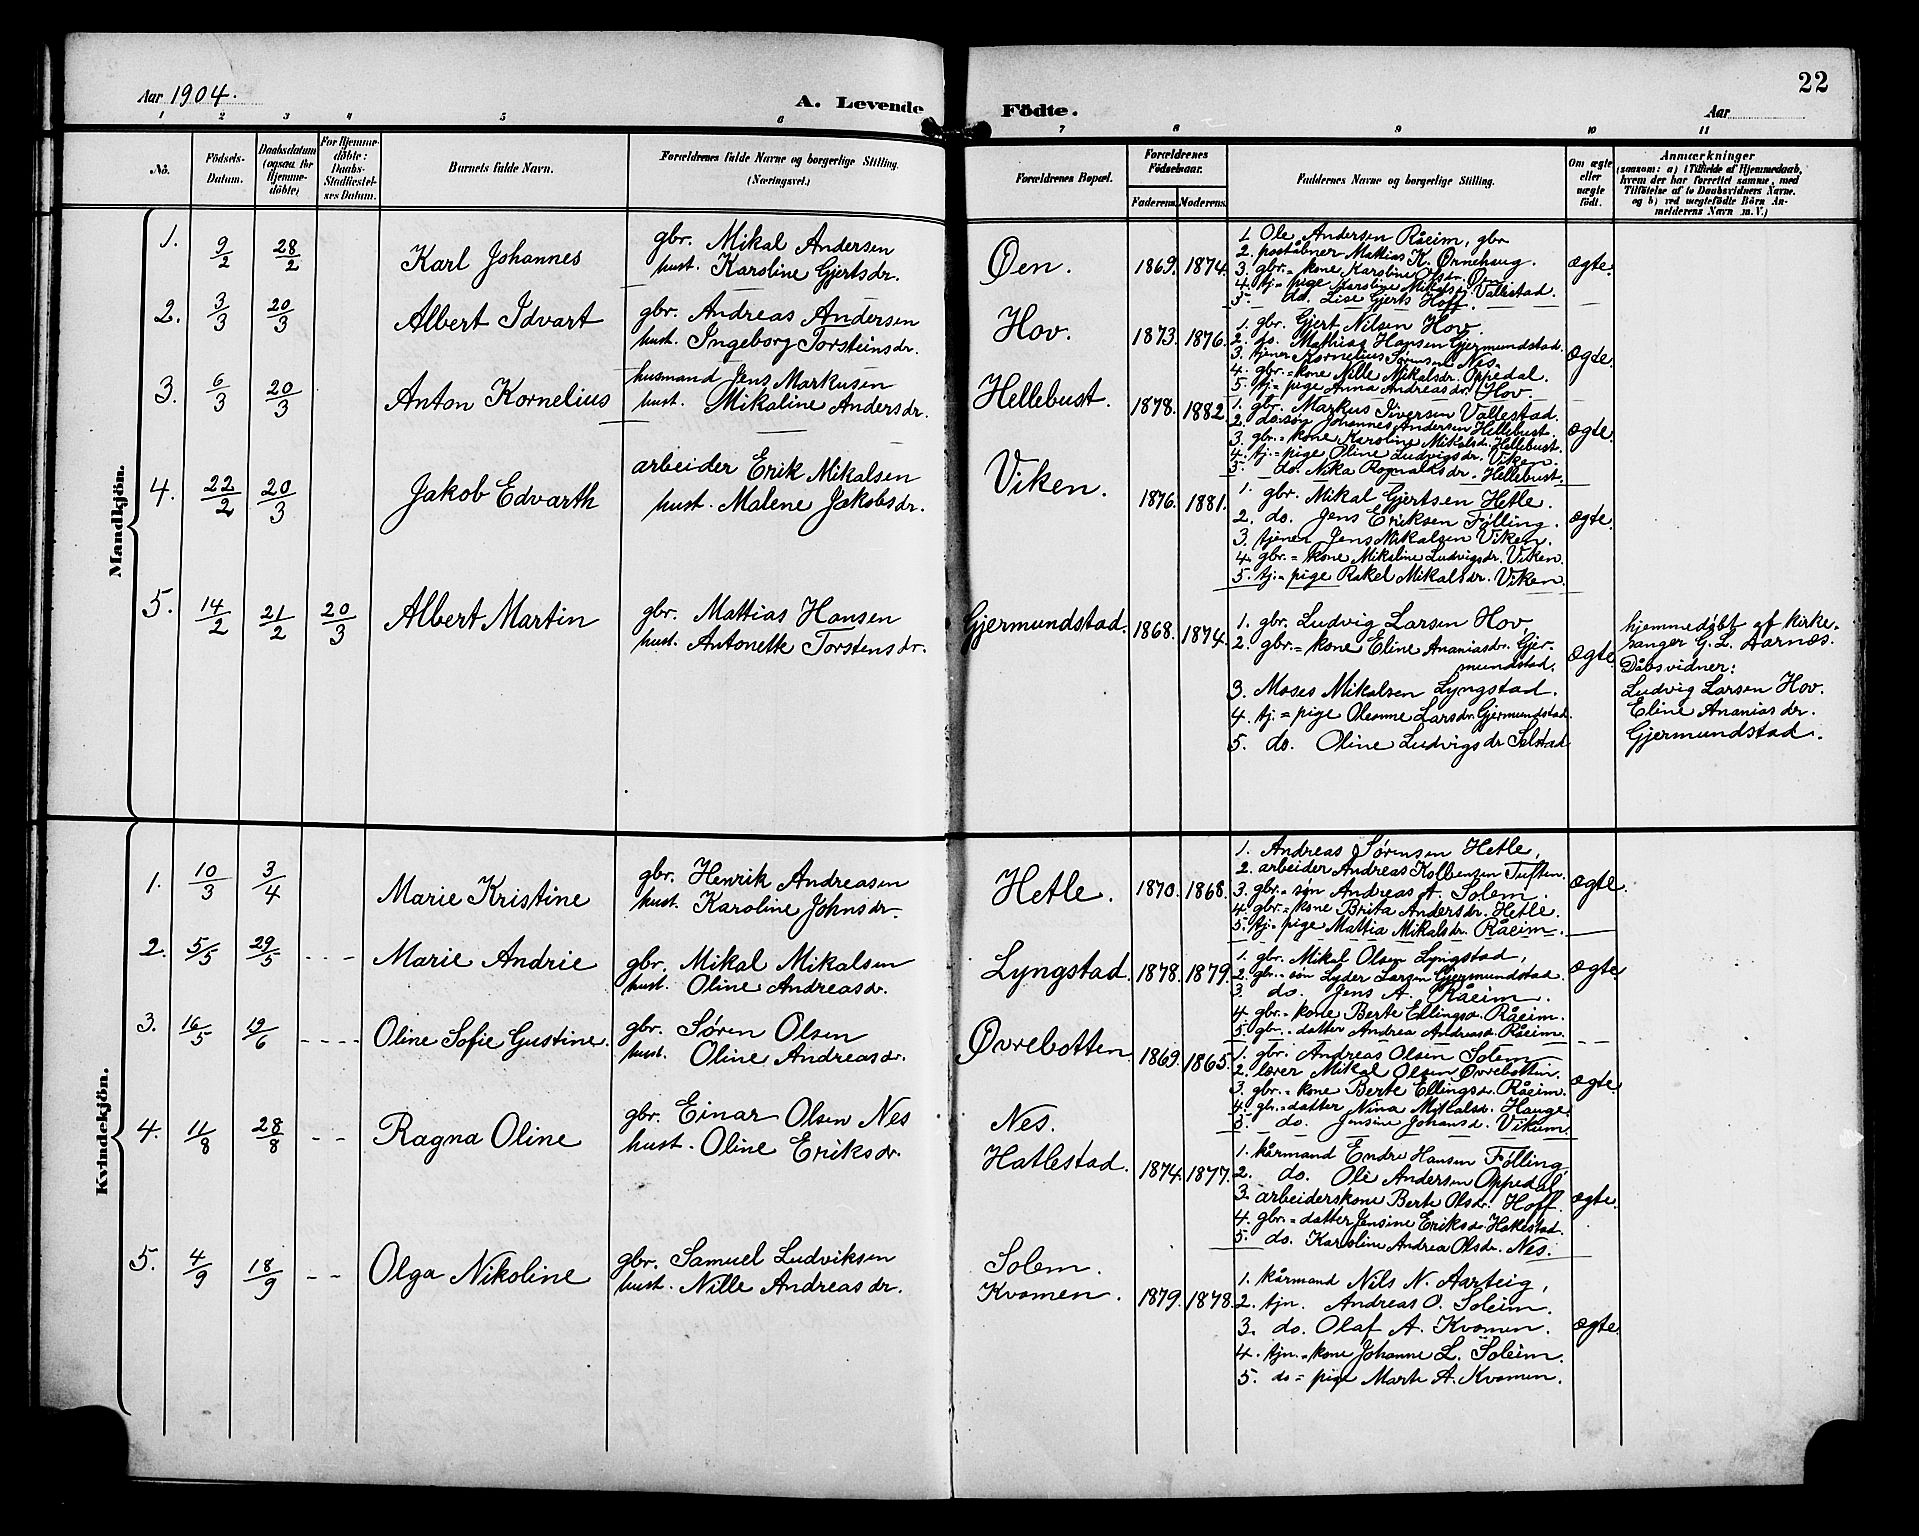 Aar 1904.
A. Levende Födte.
Aar
22
1 2 3 4 5 6 7 8 9 10 11
No.
Födsels-Datum.
Daabsdatum (ogsaa for Hjemme-döbte)
For Hjemme-döbte: Daabs-Stadfæstel-ses Datum.
Barnets fulde Navn.
Forældrenes fulde Navne og borgerlige Stilling.
(Næringsvei.)
Forældrenes Bopæl.
Forældrenes Födselsaar.
Faderens. Moderens.
Faddernes Navne og borgerlige Stilling.
Om ægte eller uægte födt.
Anmærkninger
(saasom: a) i Tilfælde af Hjemmedaab,
hvem der har forrettet samme, med
Tilföielse af to Daabsvidners Navne.
og b) ved uægtefödte Börn An-
melderens Navn m. V.)
Mandkjön.
1. 9/2 28/2 Karl Johannes
gbr. Mikal Andersen
hust. Karoline Gjertsdr.
Øen. 1869. 1874.
1. Ole Andersen Råeim, gbr
2. poståbner Mathias K. Ørnehaug.
3. gbr.= kone Karoline Olsdr. Øen
4. tj.= pige Karoline Mikalsdr. Vallestad.
5. do. Lise Gjerts Hoff.
ægte.
2. 3/3 20/3 Albert Idvart
gbr. Andreas Andersen
hust. Ingeborg Torsteinsdr.
Hov. 1873. 1876.
1. gbr. Gjert Nilsen Hov.
2. do. Mathias Hansen Gjermundstad.
3. tjener Kornelius Sørensen Nes.
4. gbr.= kone Nille Mikalsdr. Oppedal.
5. tj.= pige Anna Andreasdr. Hov.
ægte.
3. 6/3 20/3 Anton Kornelius
husmand Jens Markusen
hust. Mikaline Andersdr.
Hellebust. 1878. 1882.
1. gbr. Markus Iversen Vallestad.
2. do. søn Johannes Andersen Hellebust.
3. gbr.= kone Karoline Mikalsd. Hellebust.
4. tj.= pige Oline Ludvigsdr. Viken.
5. do. Nika Rognaldsdr. Hellebust.
ægte.
4. 22/2 20/3 Jakob Edvarth
arbeider Erik Mikalsen
hust. Malene Jakobsdr.
Viken. 1876. 1881.
1. gbr. Mikal Gjertsen Hetle.
2. do. Jens Eriksen Følling.
3. tjener Jens Mikalsen Viken.
4. gbr.= kone Mikaline Ludvigsdr. Viken
5. tj.= pige Rakel Mikalsdr. Viken.
ægte.
5. 14/2 21/2 20/3 Albert Martin
gbr. Mattias Hansen
hust. Antonette Torstensdr.
Gjermundstad. 1868. 1874.
1. gbr. Ludvig Larsen Hov,
2. gbr.= kone Eline Ananiasdr. Gjer-
mundstad.
3. Moses Mikalsen Lyngstad.
4. tj.= pige Oleanne Larsdr. Gjermundstad.
5. do. Oline Ludvigsdr Selstad
ægte.
hjemmedøbt af kirke-
sanger G. L. Aarnes.
Dåbsvidner:
Ludvig Larsen Hov.
Eline Ananiasdr.
Gjermundstad.
Kvindekjön.
1. 10/3 3/4 Marie Kristine
gbr. Henrik Andreasen
hust. Karoline Johnsdr.
Hetle. 1870. 1868.
1. Andreas Sørensen Hetle,
2. arbeider Andreas Kolbensen Tuften.
3. gbr.= søn Andreas A. Solem.
4. gbr.= kone Brita Andersdr. Hetle.
5. tj.= pige Mattia Mikalsdr. Råeim.
ægte.
2. 5/5 29/5 - - - Marie Andrie
gbr. Mikal Mikalsen
hust. Oline Andreasdr.
Lyngstad. 1878. 1879.
1. gbr. Mikal Olsen Lyngstad,
2. gbr.= søn Lyder Larsen Gjermundstad.
3. do. Jens A. Råeim.
4. gbr.= kone Berte Ellingsd. Råeim.
5. gbr.= datter Andrea Andreasd. Råeim.
ægte.
3. 16/5 19/6 - - - - Oline Sofie Gustine.
gbr. Søren Olsen
hust. Oline Andreasdr.
Øvrebotten 1869. 1865.
1. gbr. Andreas Olsen Solem
2. lærer Mikal Olsen Øvrebotten.
3. gbr.= kone Berte Ellingsd. Råeim.
4. gbr.= datter Nina Mikalsd. Hauge.
5. do. Jensine Johansd. Vikum.
ægte.
4. 11/8 28/8 - - Ragna Oline
gbr. Einar Olsen Nes
hust. Oline Eriksdr.
Nes.
Hatlestad. 1874. 1877.
1. kårmand Endre Hansen Følling,
2. do. Ole Andersen Oppedal
3. arbeiderskone Berte Olsdr. Hoff.
4. gbr.= datter Jensine Eriksd. Hatlestad.
5. do. Karoline Andrea Olsdr. Nes.
ægte.
5. 4/9 18/9 - - Olga Nikoline
gbr. Samuel Ludviksen
hust. Nille Andreasdr.
Solem.
Kvamen. 1879. 1878.
1. kårmand Nils N. Aarteig,
2. tjn. Andreas O. Soleim.
3. do. Olaf A. Kvamen.
4. tjn.= kone Johanne L. Soleim.
5. do = pige Marte A. Kvamen.
ægte.